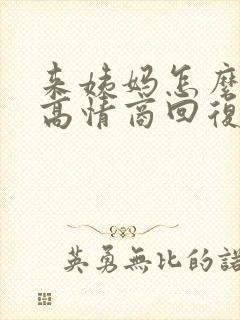 来姨妈怎麼
高情商回復
英勇無比的諾